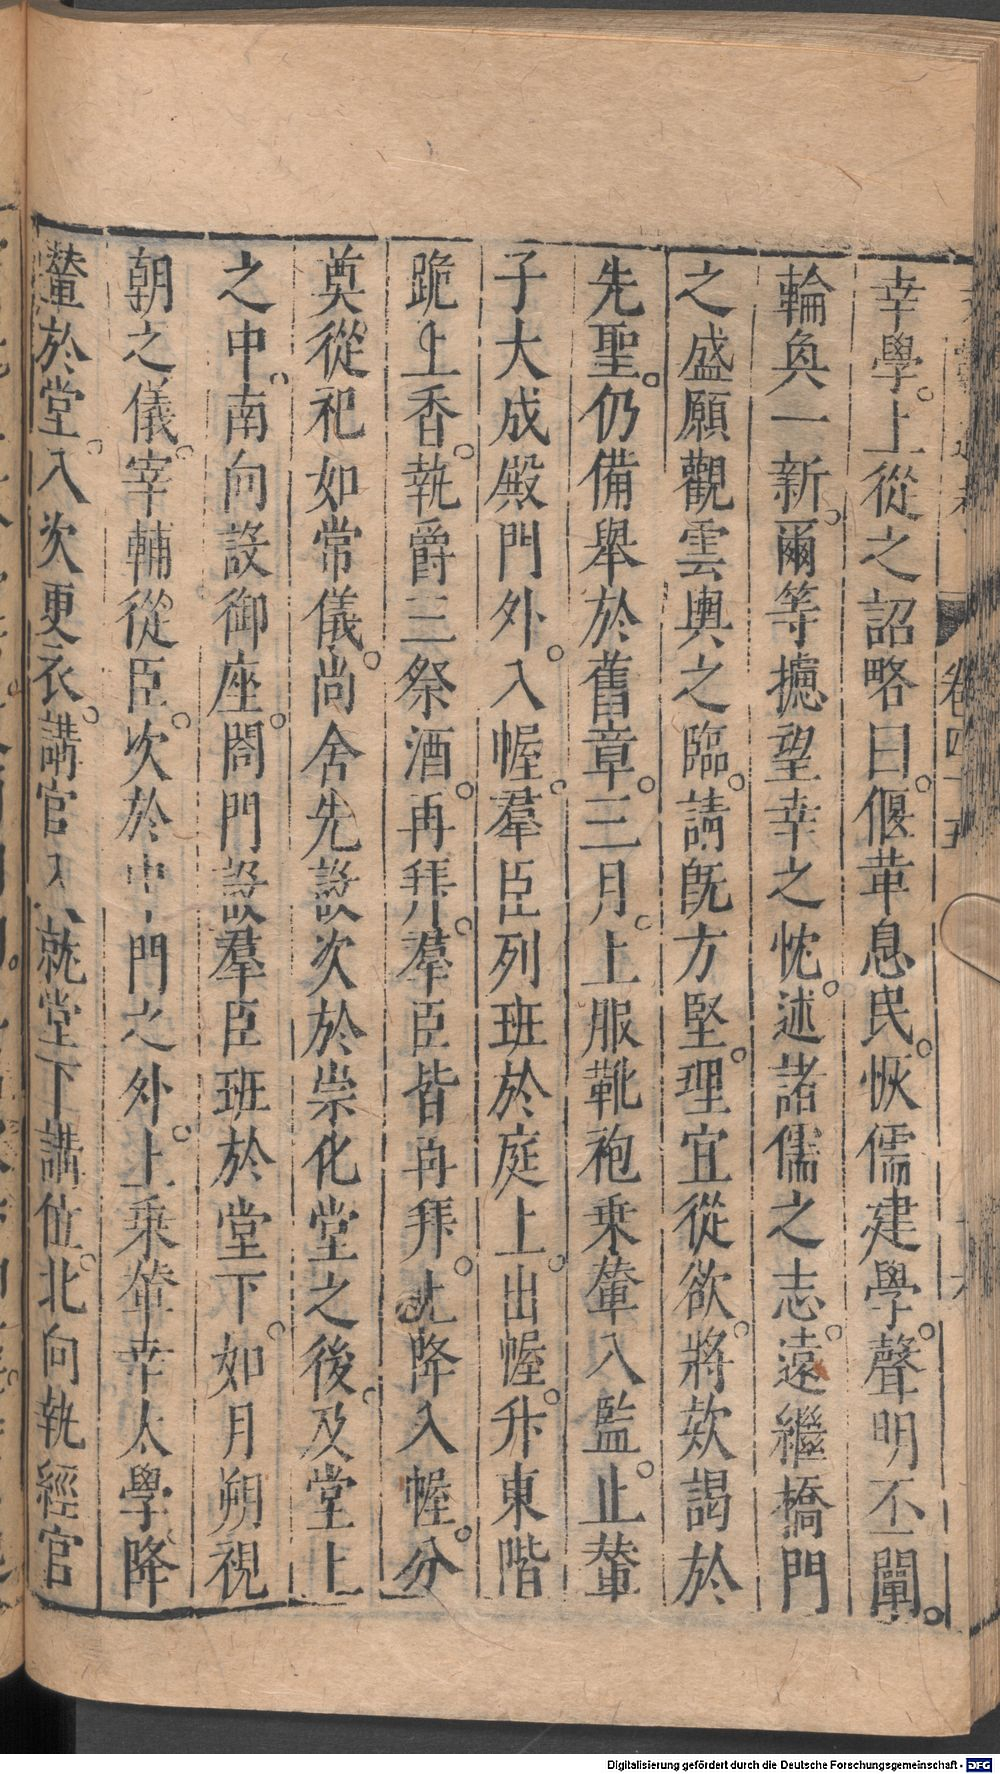 幸學。上從之詔略曰。偃革息民。恢儒建學。聲明不闡。
輪奐一新。爾等摅望幸之忱。述諸儒之志。遠繼橋門
之盛願觀雲輿之臨。請旣方堅。理宜從欲。將款謁於
先聖。仍備舉於舊章。三月。上服靴袍乗輦入監。止輦
子大成殿門外。入幄。羣臣列班於庭上。出幄。升東階
跪上香。執爵三祭酒。再拜。羣臣皆再拜。上降入幄。分
奠從祀如常儀。尚舍先設次於崇化堂之後。及堂上
之中。南向設御座。閤門設羣臣班於堂下。如月朔視
朝之儀。宰輔從臣。次於中門之外。上乗輦幸太學降
輦於堂。入次更衣。講官入就堂下講位。北向執經官
卷四十五
Digitalisierung gefördert durch die Deutsche Forschungsgemeinschaft - DFG